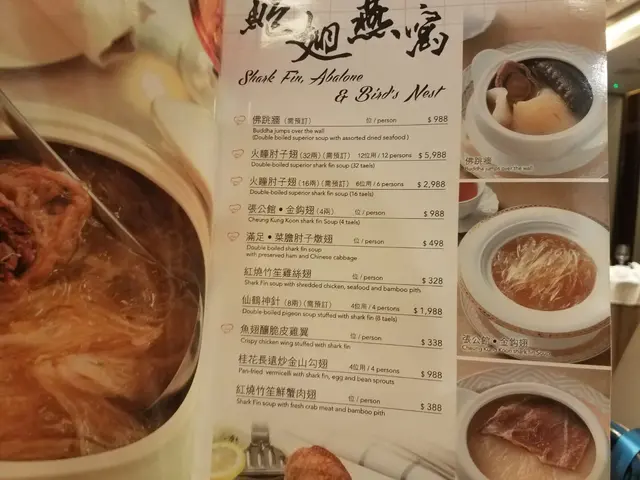 鮑翅燕窩
Shark Fin, Abalone
& Bird's Nest
佛跳牆 (需預訂) 位 / person $ 988
Buddha jumps over the wall
(Double boiled superior soup with assorted dried seafood)
火瞳肘子翅 (32兩) (需預訂) 12位用 / 12 persons $ 5,988
Double-boiled superior shark fin soup (32 taels)
火瞳肘子翅 (16兩) (需預訂) 6位用 / 6 persons $ 2,988
Double-boiled superior shark fin soup (16 taels)
張公館•金鈎翅 (4兩) 位 / person $ 988
Cheung Kung Koon shark fin Soup (4 taels)
滿足•菜膽肘子燉翅 位 / person $ 498
Double boiled shark fin soup
with preserved ham and Chinese cabbage
紅燒竹笙雞絲翅 位 / person $ 328
Shark Fin soup with shredded chicken, seafood and bamboo pith
仙鶴神針 (8兩) (需預訂) 4位用 / 4 persons $ 1,988
Double-boiled pigeon soup stuffed with shark fin (8 taels)
魚翅釀脆皮雞翼 位 / person $ 338
Crispy chicken wing stuffed with shark fin
桂花長遠炒金山勾翅 4位用 / 4 persons $ 988
Pan-fried vermicelli with shark fin, egg and bean sprouts
紅燒竹笙鮮蟹肉翅 位 / person $ 388
Shark Fin soup with fresh crab meat and bamboo pith
佛跳牆
Buddha jumps over the wall
張公館•金鈎翅
Cheung Kung Koon shark fin Soup